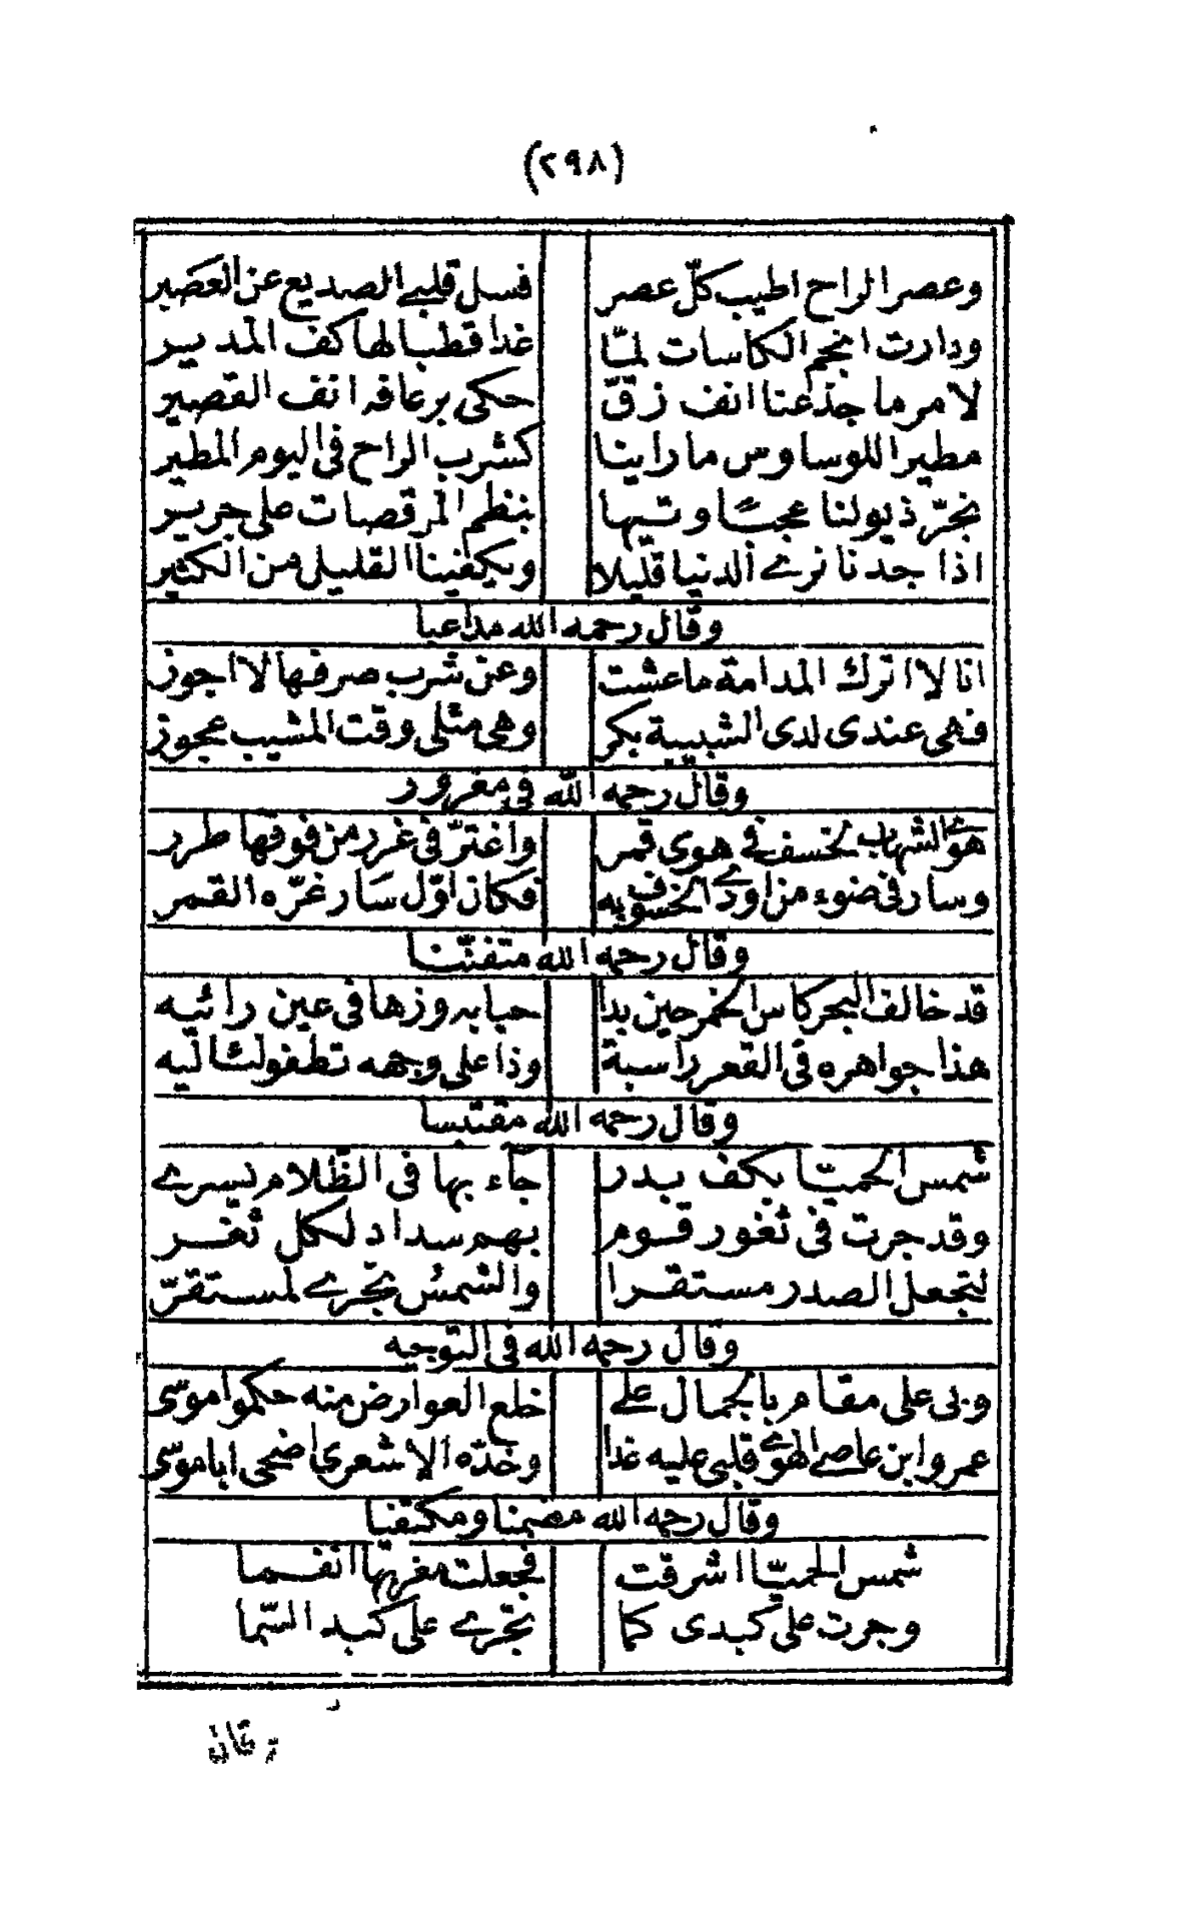 (٢٩٨)
وعصر الراح اطيب كلّ عصر فسل قلبي الصديع عن العضير
ودارت انجم الكاسات لمّا غدا قطبا لها كف المدير
لامر ما جدعنا انف زقّ حكى برعافه انف القصير
مطيرا للوساوس ما راينا كشرب الراح فى اليوم المطير
نجرّ ذيولنا عجبًا وتيها بنظم المرقصات على جرير
اذا جدنا نرى الدنيا قليلا ويكفينا القليل من الكثير
وقال رحمه الله مداعبا
انا لا اترك المدامة ما عشت وعن شرب صرفها لا اجوز
فهى عندى لدى الشبيبة بكر وهى مثلى وقت المشيب عجوز
وقال رحمه الله فى مغرور
هوى الشهاب بخسف فى هوى قمر واغترّ فى غرر من فوقها طرر
وسار فى ضوء من اودى الخسوف به فكان اوّل سار غرّه القمر
وقال رحمه الله متفنّنا
قد خالف البحر كاس الخمر حين بدا حبابه وزها فى عين رائيه
هذا جواهره فى القعر راسبة وذا على وجهه تطفو لئاليه
وقال رحمه الله مقتبسا
شمس الحميّا بكف بدر جآء بها فى الظّلام يسرى
وقد جرت فى ثغور قوم بهم سداد لكل ثغر
لتجعل الصدر مستقرا والشمس تجرى لمستقرّ
وقال رحمه الله فى التوجيه
وبى على مقام بالجمال على خلع العوارض منه حكموا موسى
عمرو ابن عاص الهوى قلبى عليه غدا وخدّه الاشعرى اضحى ابا موسى
وقال رحمه الله مضمنا ومكتفيا
شمس الحميّا اشرقت فجعلت مغربها انفما
وجرت على كبدى كما تجرى على كبد السّما